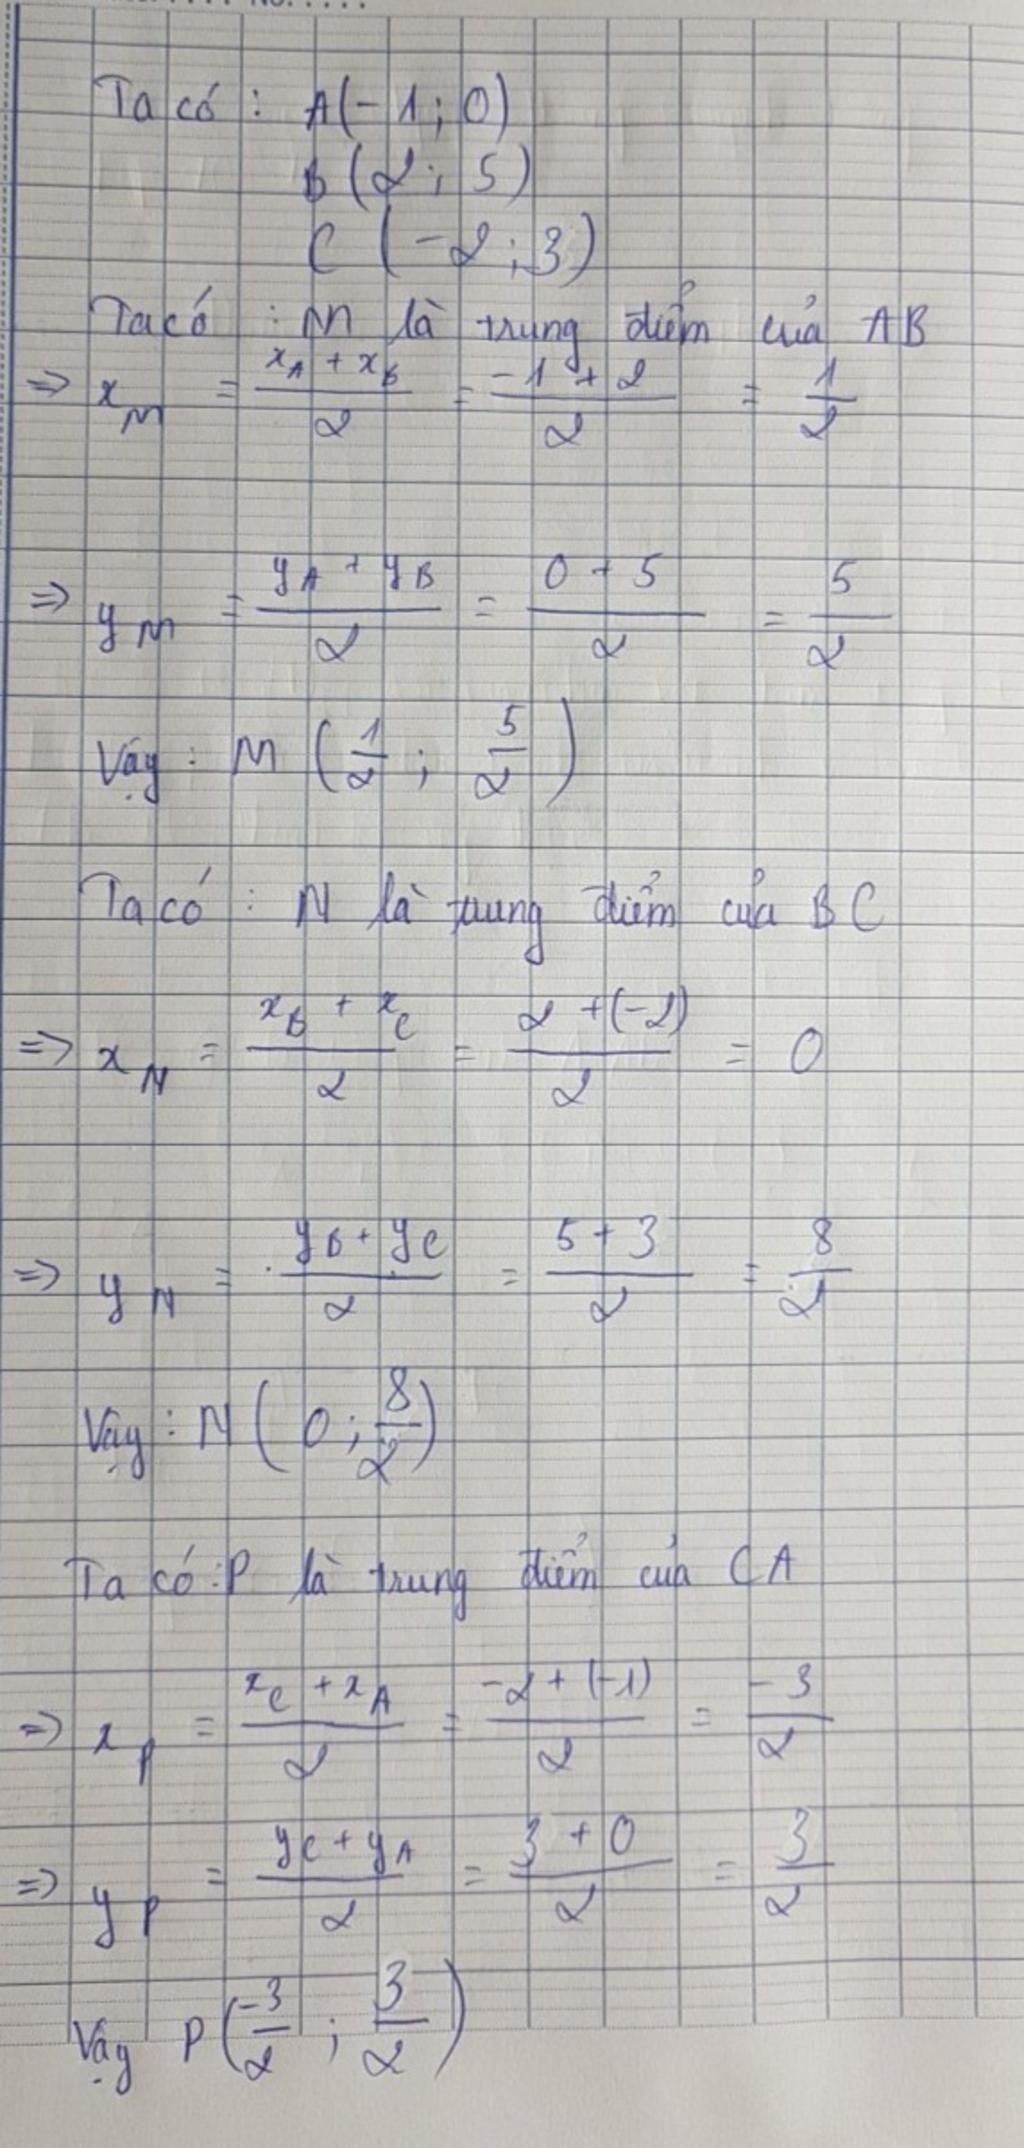 Ta có : A(-1 ; 0)
B (2 ; 5)
C (-2 ; 3)
Ta có : M là trung điểm của AB
=> x_M = (x_A + x_B)/2 = (-1 + 2)/2 = 1/2
=> y_M = (y_A + y_B)/2 = (0 + 5)/2 = 5/2
Vậy : M (1/2 ; 5/2)
Ta có : N là trung điểm của BC
=> x_N = (x_B + x_C)/2 = (2 + (-2))/2 = 0
=> y_N = (y_B + y_C)/2 = (5 + 3)/2 = 8/2
Vậy : N (0 ; 8/2)
Ta có : P là trung điểm của CA
=> x_P = (x_C + x_A)/2 = (-2 + (-1))/2 = -3/2
=> y_P = (y_C + y_A)/2 = (3 + 0)/2 = 3/2
Vậy P (-3/2 ; 3/2)